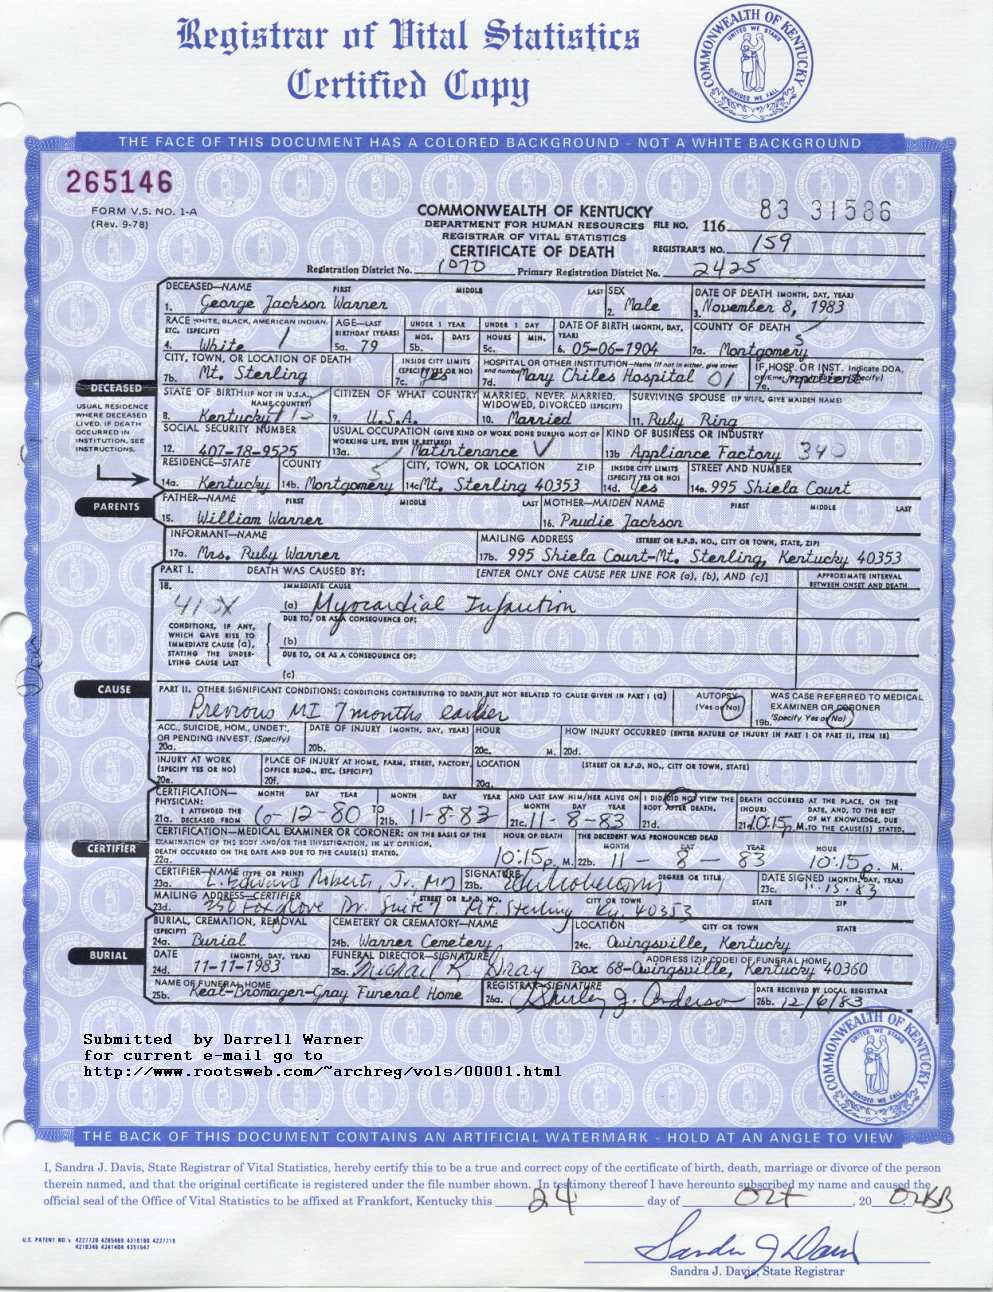 Registrar of Vital Statistics
Certified Copy
COMMONWEALTH OF KENTUCKY
UNITED WE STAND
DIVIDED WE FALL
THE FACE OF THIS DOCUMENT HAS A COLORED BACKGROUND - NOT A WHITE BACKGROUND
265146
FORM V.S. NO. 1-A
(Rev. 9-78)
COMMONWEALTH OF KENTUCKY
DEPARTMENT FOR HUMAN RESOURCES
REGISTRAR OF VITAL STATISTICS
CERTIFICATE OF DEATH
FILE NO. 116 83 31586
REGISTRAR'S NO. 159
Registration District No. 1070 Primary Registration District No. 2425
DECEASED—NAME FIRST MIDDLE LAST SEX DATE OF DEATH (MONTH, DAY, YEAR)
1. George Jackson Warner 2. Male 3. November 8, 1983
RACE WHITE, BLACK, AMERICAN INDIAN, ETC. (SPECIFY) AGE—LAST BIRTHDAY (YEARS) UNDER 1 YEAR MOS. DAYS UNDER 1 DAY HOURS MIN. DATE OF BIRTH (MONTH, DAY, YEAR) COUNTY OF DEATH
4. White 1 5a. 79 5b. 5c. 6. 05-06-1904 7a. Montgomery
CITY, TOWN, OR LOCATION OF DEATH INSIDE CITY LIMITS (SPECIFY YES OR NO) HOSPITAL OR OTHER INSTITUTION—Name (If not in either, give street and number) IF HOSP. OR INST. Indicate DOA,
7b. Mt. Sterling 7c. Yes 7d. Mary Chiles Hospital 01 7e. Inpatient
DECEASED
USUAL RESIDENCE
WHERE DECEASED
LIVED. IF DEATH
OCCURRED IN
INSTITUTION, SEE
INSTRUCTIONS.
STATE OF BIRTH (IF NOT IN U.S.A., NAME COUNTRY) CITIZEN OF WHAT COUNTRY MARRIED, NEVER MARRIED, WIDOWED, DIVORCED (SPECIFY) SURVIVING SPOUSE (IF WIFE, GIVE MAIDEN NAME)
8. Kentucky 9. U.S.A. 10. Married 11. Ruby Ring
SOCIAL SECURITY NUMBER USUAL OCCUPATION (GIVE KIND OF WORK DONE DURING MOST OF WORKING LIFE, EVEN IF RETIRED) KIND OF BUSINESS OR INDUSTRY
12. 407-18-9525 13a. Matintenance 13b Appliance Factory 340
RESIDENCE—STATE COUNTY CITY, TOWN, OR LOCATION ZIP INSIDE CITY LIMITS (SPECIFY YES OR NO) STREET AND NUMBER
14a. Kentucky 14b. Montgomery 14c Mt. Sterling 40353 14d. Yes 14e. 995 Shiela Court
PARENTS
FATHER—NAME FIRST MIDDLE LAST MOTHER—MAIDEN NAME FIRST MIDDLE LAST
15. William Warner 16. Prudie Jackson
INFORMANT—NAME MAILING ADDRESS (STREET OR R.F.D. NO., CITY OR TOWN, STATE, ZIP)
17a. Mrs. Ruby Warner 17b. 995 Shiela Court-Mt. Sterling, Kentucky 40353
PART I. DEATH WAS CAUSED BY: [ENTER ONLY ONE CAUSE PER LINE FOR (a), (b), AND (c)] APPROXIMATE INTERVAL BETWEEN ONSET AND DEATH
18. IMMEDIATE CAUSE
410X (a) Myocardial Infarction
DUE TO, OR AS A CONSEQUENCE OF:
CONDITIONS, IF ANY,
WHICH GAVE RISE TO
IMMEDIATE CAUSE (a),
STATING THE UNDER-
LYING CAUSE LAST
(b)
DUE TO, OR AS A CONSEQUENCE OF:
(c)
CAUSE
PART II. OTHER SIGNIFICANT CONDITIONS: CONDITIONS CONTRIBUTING TO DEATH BUT NOT RELATED TO CAUSE GIVEN IN PART I (a) AUTOPSY (Yes or No) WAS CASE REFERRED TO MEDICAL EXAMINER OR CORONER (Specify Yes or No)
Previous MI 7 months earlier 19b.
ACC., SUICIDE, HOM., UNDET., OR PENDING INVEST. (Specify) DATE OF INJURY (MONTH, DAY, YEAR) HOUR HOW INJURY OCCURRED (ENTER NATURE OF INJURY IN PART I OR PART II, ITEM 18)
20a. 20b. 20c. M. 20d.
INJURY AT WORK (SPECIFY YES OR NO) PLACE OF INJURY AT HOME, FARM, STREET, FACTORY, OFFICE BLDG., ETC. (SPECIFY) LOCATION (STREET OR R.F.D. NO., CITY OR TOWN, STATE)
20e. 20f. 20g.
CERTIFICATION—PHYSICIAN: MONTH DAY YEAR MONTH DAY YEAR AND LAST SAW HIM/HER ALIVE ON MONTH DAY YEAR I DID/DID NOT VIEW THE BODY AFTER DEATH. DEATH OCCURRED AT THE PLACE, ON THE DATE, AND, TO THE BEST OF MY KNOWLEDGE, DUE TO THE CAUSE(S) STATED. (HOUR)
21a. I ATTENDED THE DECEASED FROM 6-12-80 TO 21b. 11-8-83 21c. 11-8-83 21d. 10:15p. M.
CERTIFIER
CERTIFICATION—MEDICAL EXAMINER OR CORONER: ON THE BASIS OF THE EXAMINATION OF THE BODY AND/OR THE INVESTIGATION, IN MY OPINION, DEATH OCCURRED ON THE DATE AND DUE TO THE CAUSE(S) STATED. HOUR OF DEATH THE DECEDENT WAS PRONOUNCED DEAD MONTH DAY YEAR HOUR
22a. 10:15p. M. 22b. 11 - 8 - 83 10:15p. M.
CERTIFIER—NAME (TYPE OR PRINT) SIGNATURE DEGREE OR TITLE DATE SIGNED (MONTH, DAY, YEAR)
23a. L. Edward Roberts, Jr., MD 23b. 23c. 11-15-83
MAILING ADDRESS—CERTIFIER STREET OR R.F.D. NO. CITY OR TOWN STATE ZIP
23d. Foxglove Dr. Suite Mt. Sterling Ky. 40353
BURIAL, CREMATION, REMOVAL (SPECIFY) CEMETERY OR CREMATORY—NAME LOCATION CITY OR TOWN STATE
24a. Burial 24b. Warner Cemetery 24c. Owingsville, Kentucky
BURIAL
DATE (MONTH, DAY, YEAR) FUNERAL DIRECTOR—SIGNATURE ADDRESS (ZIP CODE) OF FUNERAL HOME
24d. 11-11-1983 25a. Michael R Gray Box 68-Owingsville, Kentucky 40360
NAME OF FUNERAL HOME REGISTRAR—SIGNATURE DATE RECEIVED BY LOCAL REGISTRAR
25b. Keal-Bromagen-Gray Funeral Home 26a. Shirley J. Anderson 26b. 12/6/83
Submitted by Darrell Warner
for current e-mail go to
http://www.rootsweb.com/~archreg/vols/00001.html
COMMONWEALTH OF KENTUCKY
UNITED WE STAND
DIVIDED WE FALL
THE BACK OF THIS DOCUMENT CONTAINS AN ARTIFICIAL WATERMARK - HOLD AT AN ANGLE TO VIEW
I, Sandra J. Davis, State Registrar of Vital Statistics, hereby certify this to be a true and correct copy of the certificate of birth, death, marriage or divorce of the person
therein named, and that the original certificate is registered under the file number shown. In testimony thereof I have hereunto subscribed my name and caused the
official seal of the Office of Vital Statistics to be affixed at Frankfort, Kentucky this 24 day of Oct, 20 02 KB
Sandra J Davis
Sandra J. Davis, State Registrar